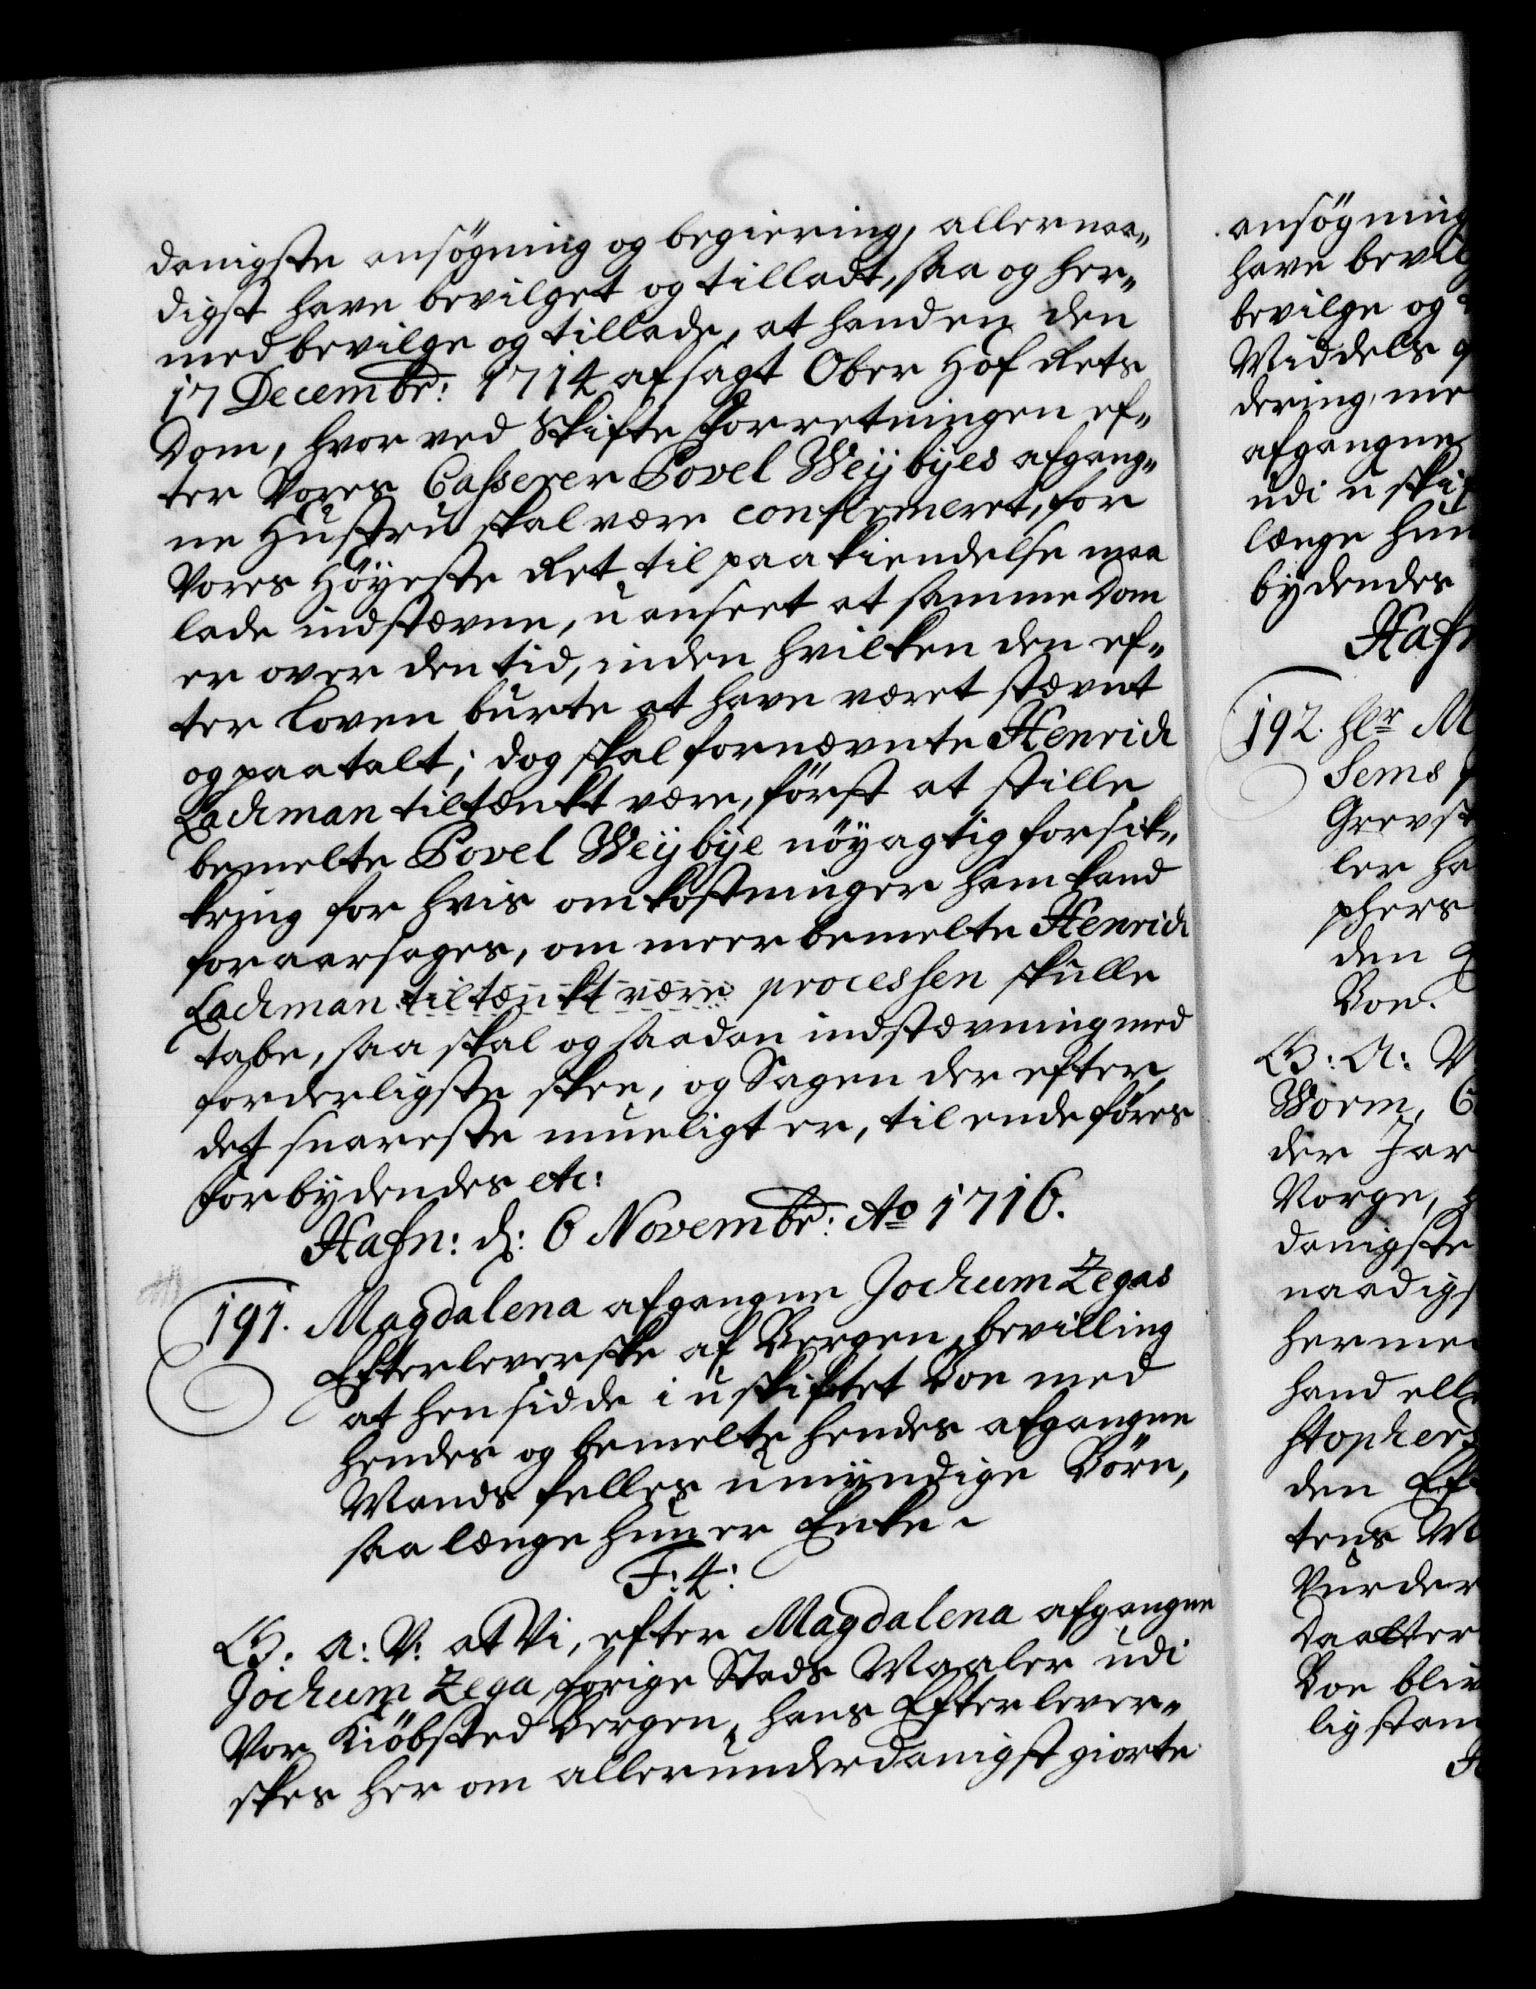 danigste ansögning og begiering, allernaa„
digst have bevilget og tilladt, saa og her„
med bevilge og tillade, at hand en den
17 Decembr: 1714 afsagt Ober Hof Rets
Dom, hvor ved Skifte Forretningen ef„
ter Vores Casserer Povel Weybyes afgang„
ne Hustru skal være confirmeret, for
Vores Höyeste Ret til paakiendelse maa
lade indstævne, uanseet at samme Dom
er over den tid, inden hvilken den ef„
ter Loven burte at have været stævnt
og paatalt; dog skal fornævnte Henrich
Lachman tiltænkt være, først at stille
bemelte Povel Weybye nöyagtig forsik„
kring for hvis omkostninger ham kand
foraarsages, om meer bemelte Henrich
Lachman tiltænkt være processen skulle
tabe, saa skal og saadan indstævning med
forderligste skee, og Sagen der efter,
det snareste mueligt er, til ende föres
Forbydendes etc:
Hafn: d: 6 Novembr: Ao 1716.
191. Magdalena afgangne Jochum Zegas
Efterleverske af Bergen, bevilling
at hensidde i uskiftet Boe med
hendes og bemelte hendes afgangne
Mands felles umyndige Börn,
saa længe hun er Enke.
F: 4:
G: A: V: at Vi, efter Magdalena afgangne
Jochum Zega, forige Stads Maaler udi
Vor Kiöbsted Bergen, hans Efterlever„
skes her om allerunderdanigst giorte
ansögning
have bevilg
bevilge og
Middels
dering, me
afgangne
udi uskif
længe hun
bydendes
Hafn
192. Hr M
Sems
Grevst
ler ha
phers
den
Boe.
G: A: V
Worm, C
der Jar
Norge,
danigste
naadigs
herme
hand elle
stophers
den Ef
tens M
Vurder
Daatter
Boe bliv
lig stam